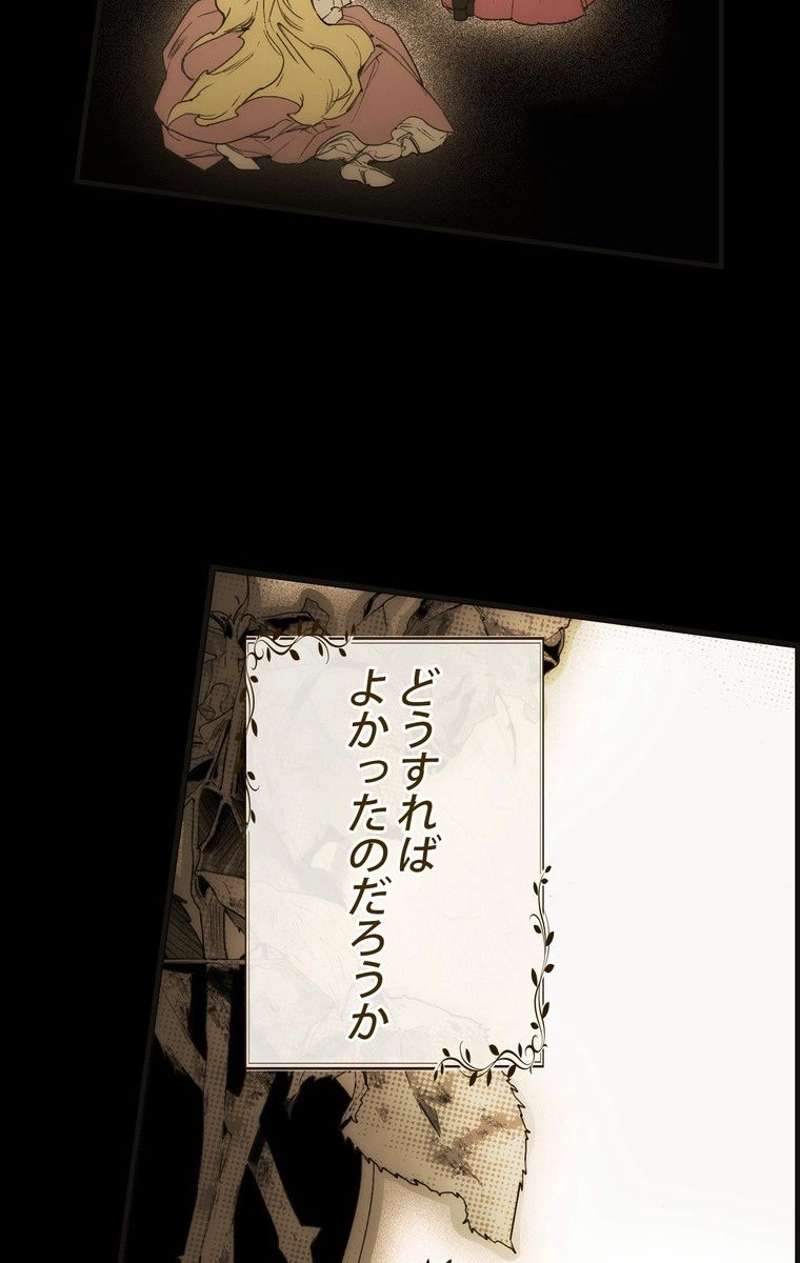 どうすれば
よかったのだろうか